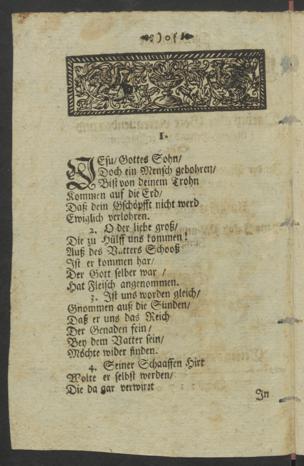 )o(
1.
JEsu/ Gottes Sohn/
Doch ein Mensch gebohren/
Bist von deinem Trohn
Kommen auf die Erd/
Daß dem Gschöpfft nicht werd
Ewiglich verlohren.
2. O der liebe groß/
Die zu Hülff uns kommen!
Auß des Vatters Schooß
Ist er kommen har/
Der Gott selber war /
Hat Fleisch angenommen.
3. Ist uns worden gleich/
Gnommen auß die Sünden/
Daß er uns das Reich
Der Genaden sein/
Bey dem Vatter sein/
Möchte wider finden.
4. Seiner Schaaffen Hirt
Wolte er selbst werden/
Die da gar verwirrt
In